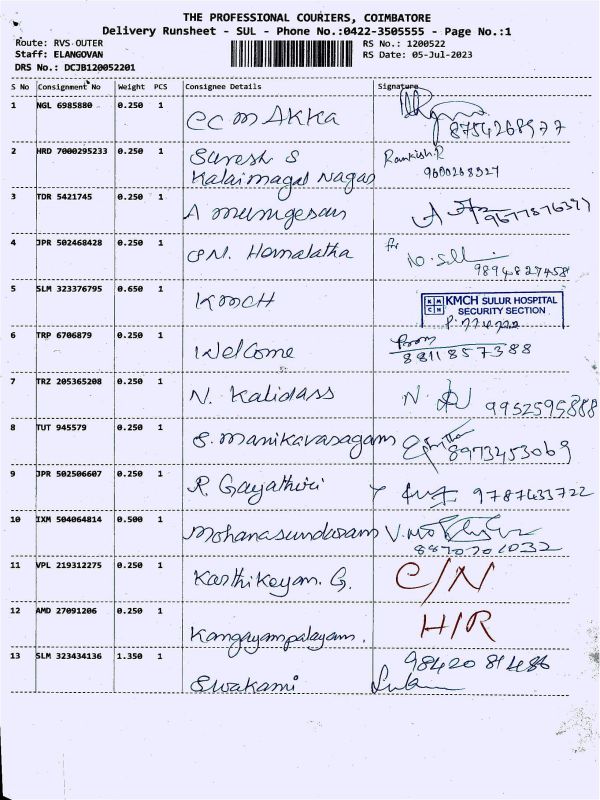 THE PROFESSIONAL COURIERS, COIMBATORE
Delivery Runsheet - SUL - Phone No.:0422-3505555 - Page No.:1
Route: RVS OUTER
RS No.: 1200522
Staff: ELANGOVAN
RS Date: 05-Jul-2023
DRS No.: DCJB120052201
S No Consignment No Weight PCS Consignee Details Signature
1 NGL 6985880 0.250 1 CC M AKKA 8754268977
2 HRD 7000295233 0.250 1 Suresh S
Kalaimagal Nagar
Ramkish.R
9600268327
3 TDR 5421745 0.250 1 A murugesan
4 JPR 502468428 0.250 1 Hemalatha for
9894827458
5 SLM 323376795 0.650 1 KMCH
KMCH SULUR HOSPITAL
SECURITY SECTION
6 TRP 6706879 0.250 1 Welcome
8811857388
7 TRZ 205365208 0.250 1 N. Kalidass 9952595888
8 TUT 945579 0.250 1 S. Manikavasagam 8973453069
9 JPR 502506607 0.250 1 R. Gayathiri 9787433722
10 IXM 504064814 0.500 1 Mohanasundaram
11 VPL 219312275 0.250 1 Karthikeyam. G. C/N
12 AMD 27091206 0.250 1 Kangayampalayam. H/R
13 SLM 323434136 1.350 1 Swakami
98420 81486